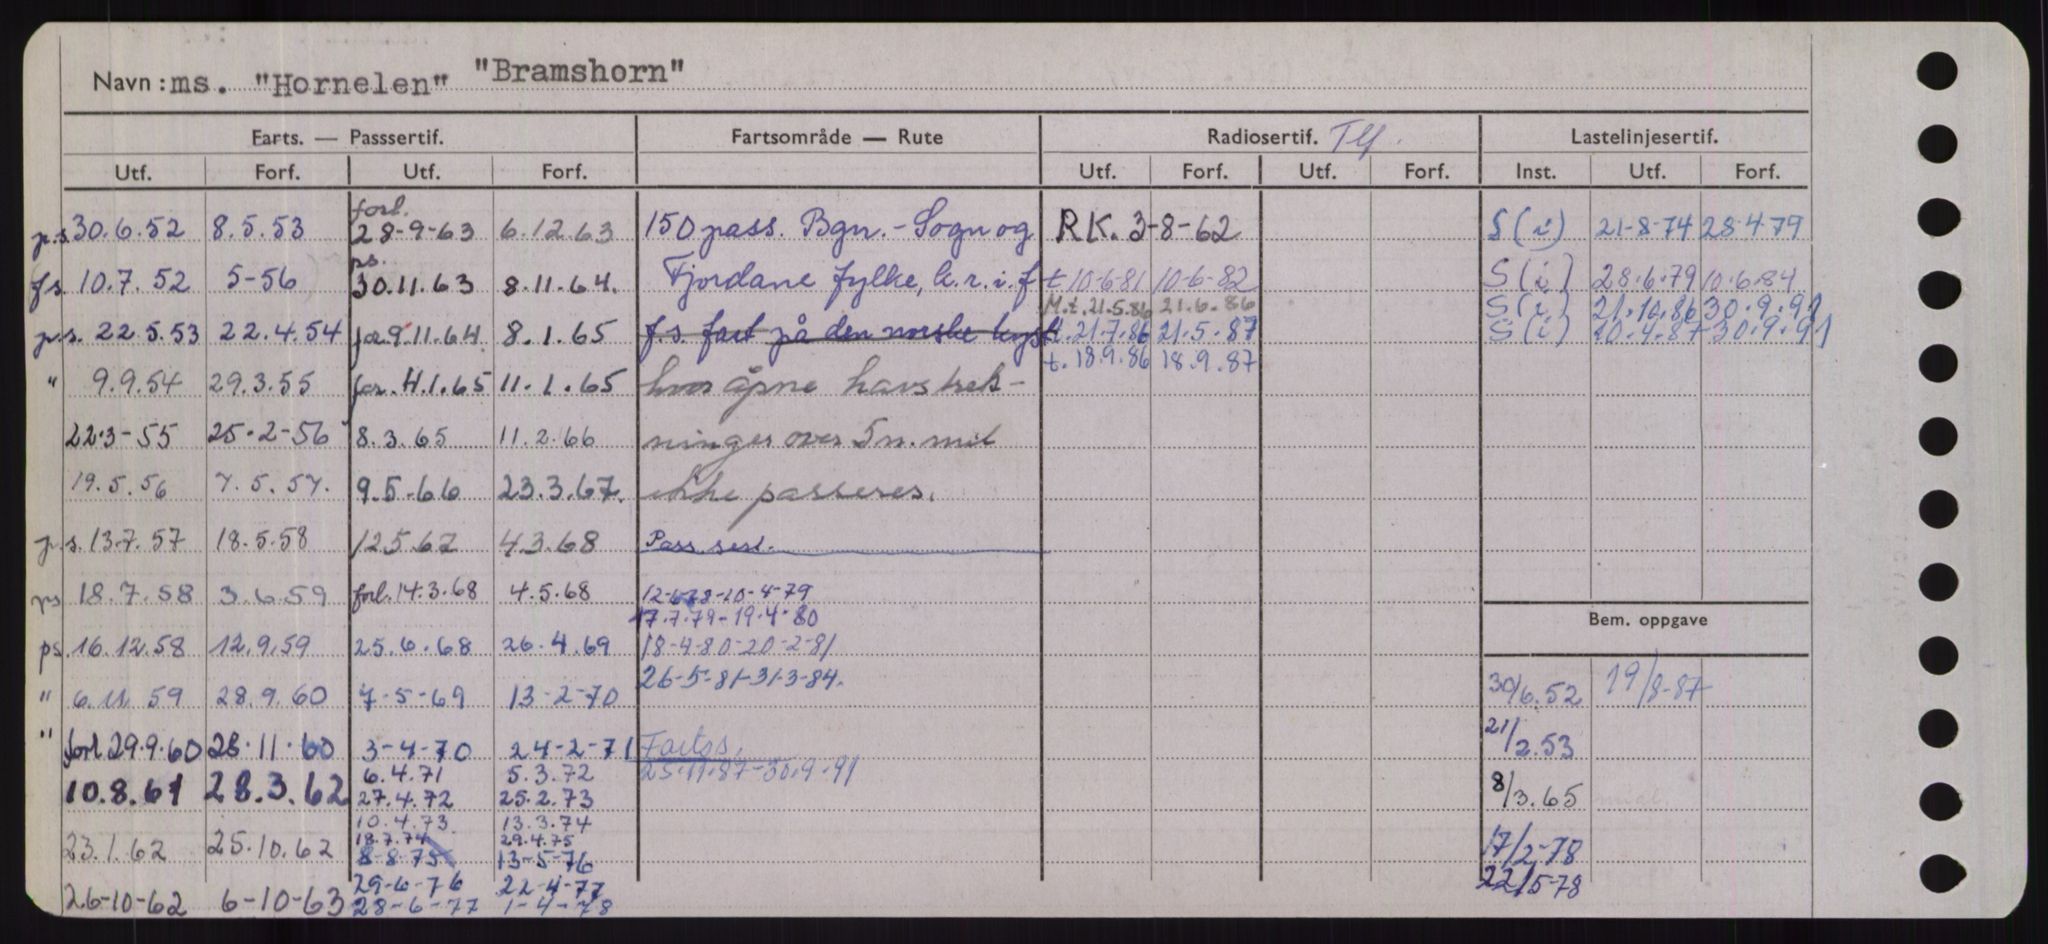 Navn: ms. "Hornelen" "Bramshorn"
Farts. — Passsertif. Fartsområde — Rute Radiosertif. Tlf. Lastelinjesertif.
Utf. Forf. Utf. Forf. Utf. Forf. Utf. Forf. Inst. Utf. Forf.
p.s. 30.6.52 8.5.53 forl. 28-9-63 6.12.63 150 pass. Bgn. - Sogn og RK. 3-8-62 S(i) 21-8-74 28-4-79
f.s. 10.7.52 5-56 ps. 30.11.63 8.11.64. Fjordane fylke, k.r.i.f t 10-6-81 10-6-82 S(i) 28.6.79 10.6.84
M.t. 21.5.86 21.6.86 S(i) 21.10.86 30.9.91
p.s. 22.5.53 22.4.54 for. 9.11.64 8.1.65 f.s. fart på den norske kyst t. 21.7.86 21.5.87 S(i) 10.4.87 30.9.91
t. 18.9.86 18.9.87
" 9.9.54 29.3.55 for. 4.1.65 11.1.65 hvor åpne havstrek-
22.3-55 25-2-56 8.3.65 11.2.66 ninger over 5 n. mil
19.5.56 7.5.57. 9.5-66 23.3.67. ikke passeres.
p.s. 13.7.57 18.5.58 12.5.67 4.3.68 Pass sert.
ps 18.7.58 3.6.59 forl. 14.3.68 4.5.68 12-6-78-10-4-79
17.7.79-19.4.80
ps. 16.12.58 12.9.59 25.6.68 26.4.69 18-4-80-20-2-81
26-5-81-31-3-84.
" 6.11.59 28.9.60 7-5-69 13-2-70
" forl 29.9.60 28.11.60 3-4-70 24-2-71 Fartss.
6.4.71 5.3.72 25.11.87-30.9.91
10.8.61 28.3.62 27.4.72 25.2.73
10.4.73 13.3.74
18.7.74 29.4.75
23.1.62 25.10.62 8-8-75 13-5-76
29-6-76 22-4-77
26-10-62 6-10-63 28-6-77 1-4-78
Bem. oppgave
30/6.52 19/8-87
21/2.53
8/3.65
17/2-78
22/5-78